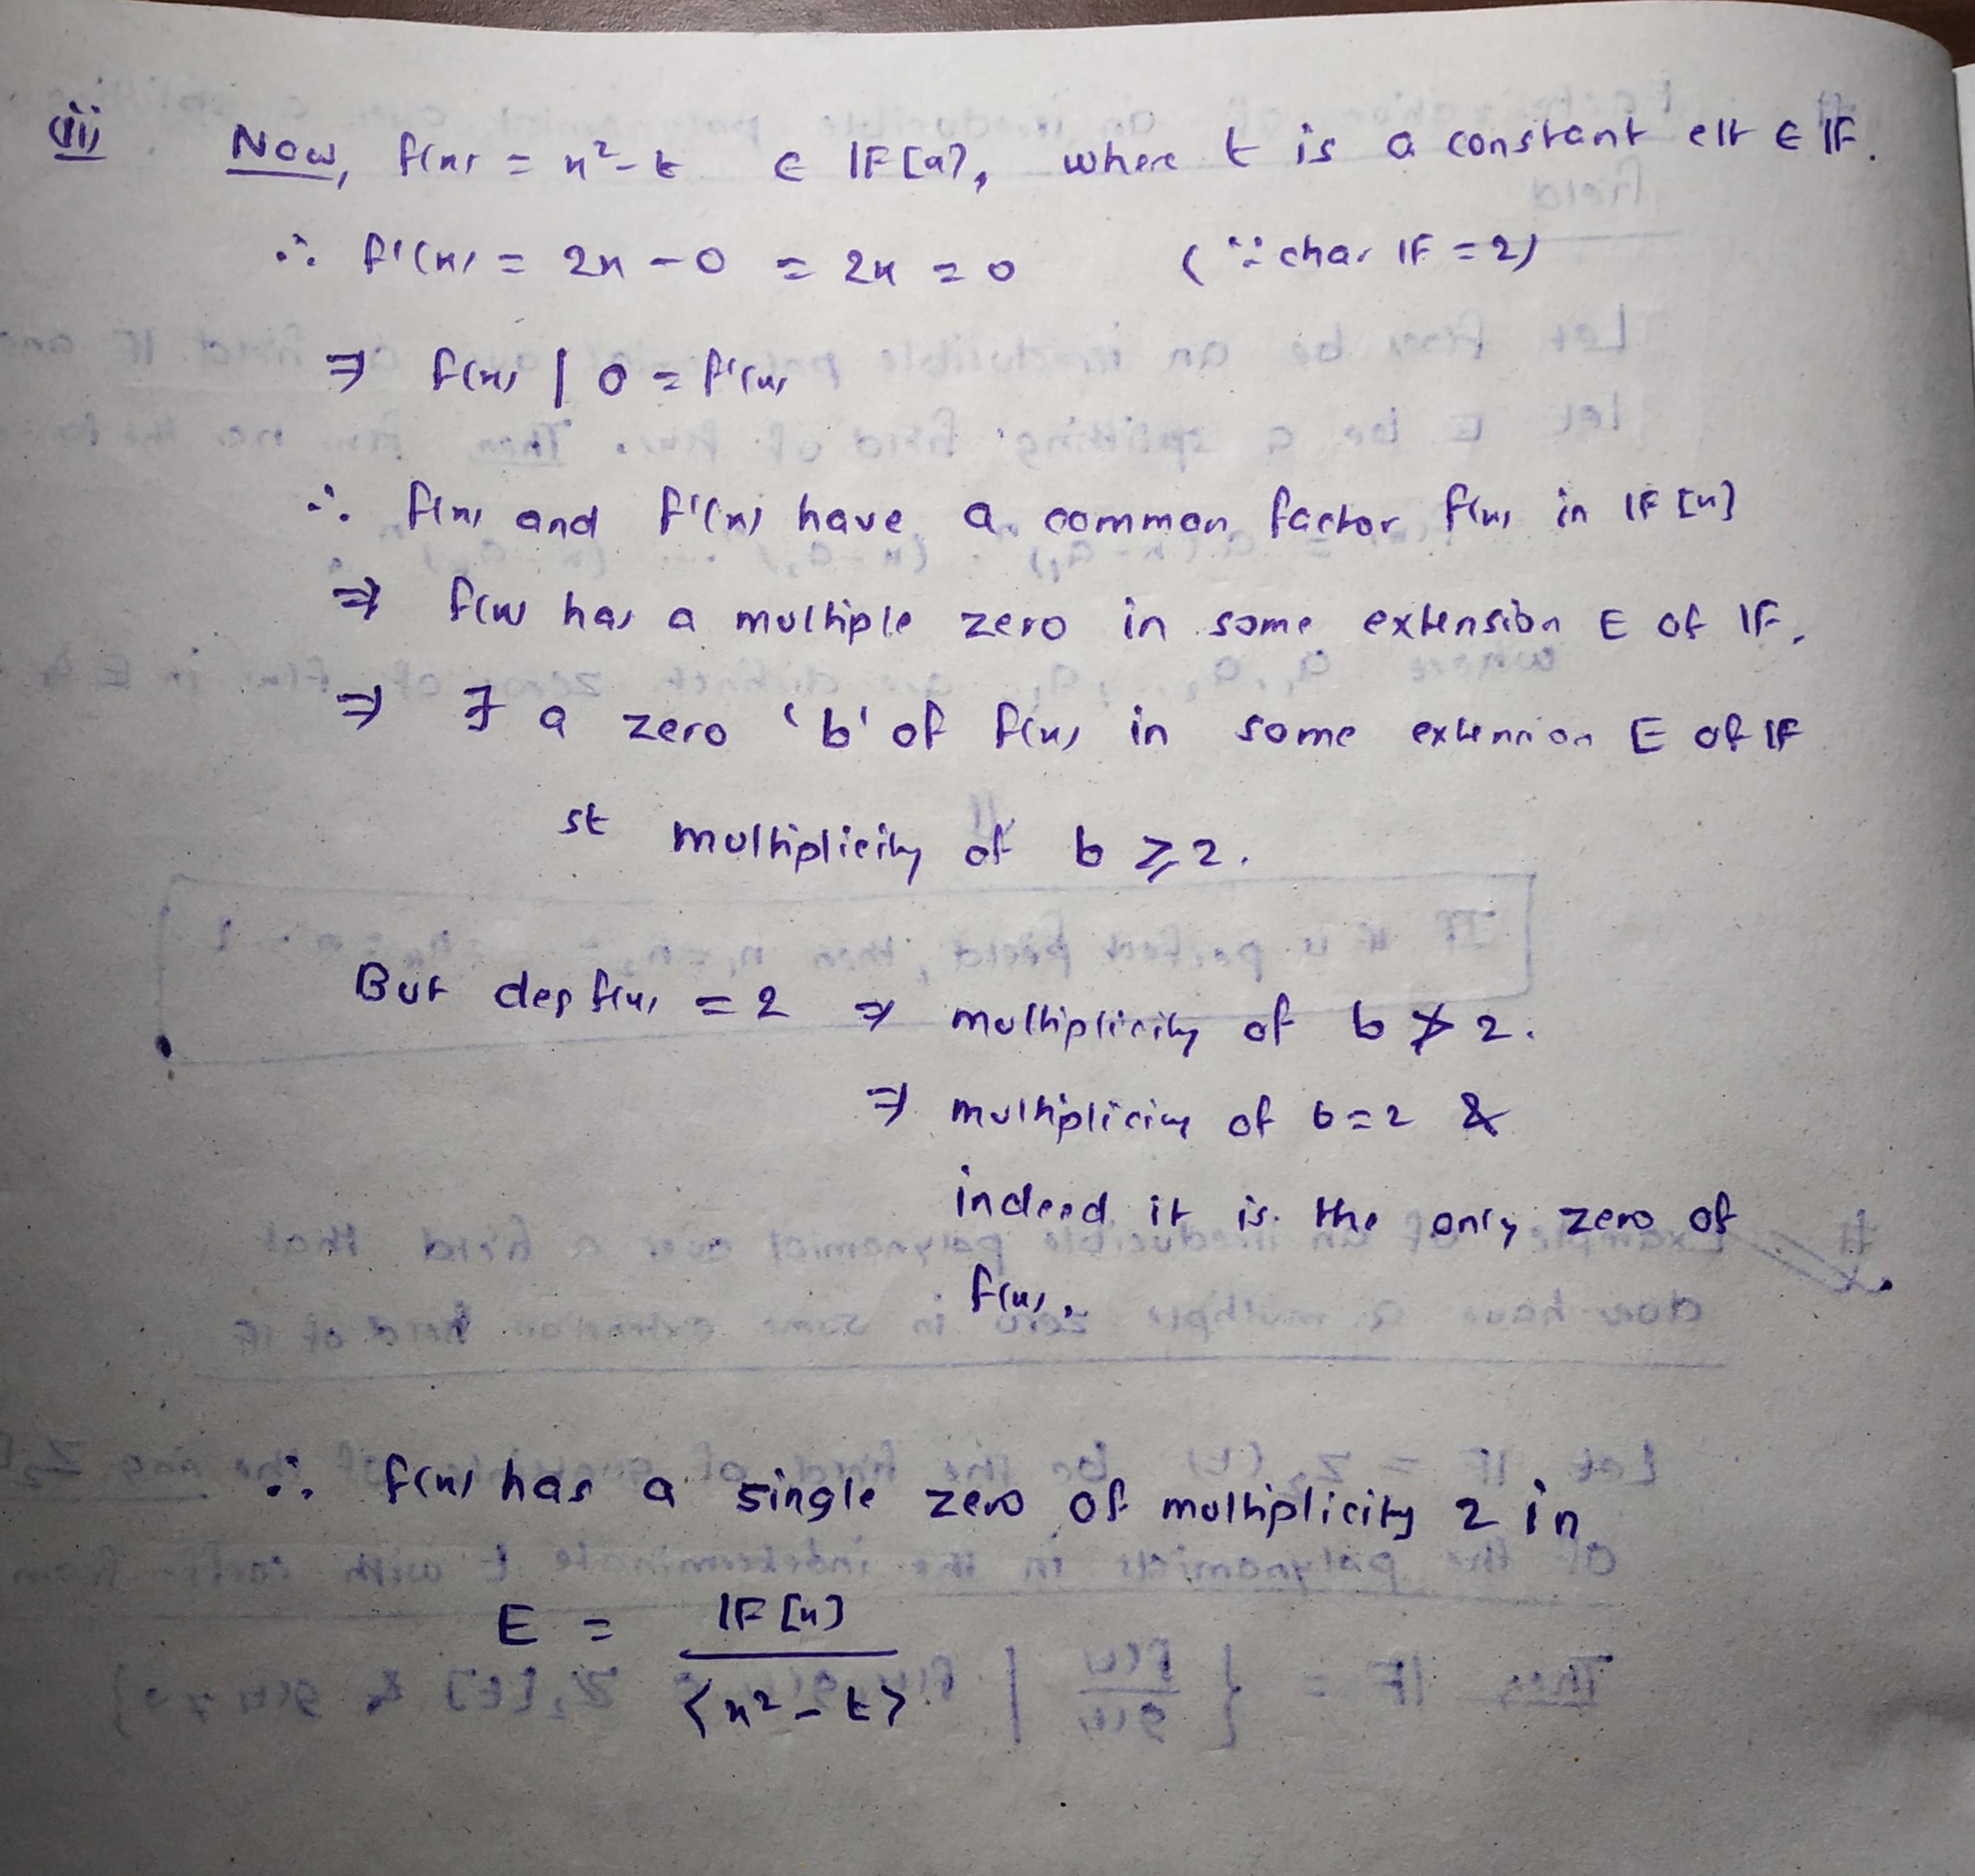 (iii) Now, f(x) = x² - t ∈ IF[x], where t is a constant elt ∈ IF.
∴ f'(x) = 2x - 0 = 2x = 0 (∵ char IF = 2)
⇒ f(x) | 0 = f'(x)
∴ f(x) and f'(x) have a common factor f(x) in IF[x]
⇒ f(x) has a multiple zero in some extension E of IF.
⇒ ∃ a zero 'b' of f(x) in some extension E of IF
st multiplicity of b ⩾ 2.
But deg f(x) = 2 ⇒ multiplicity of b ≯ 2.
⇒ multiplicity of b = 2 &
indeed it is the only zero of
f(x).
∴ f(x) has a single zero of multiplicity 2 in
E = IF[x]
<x² - t>